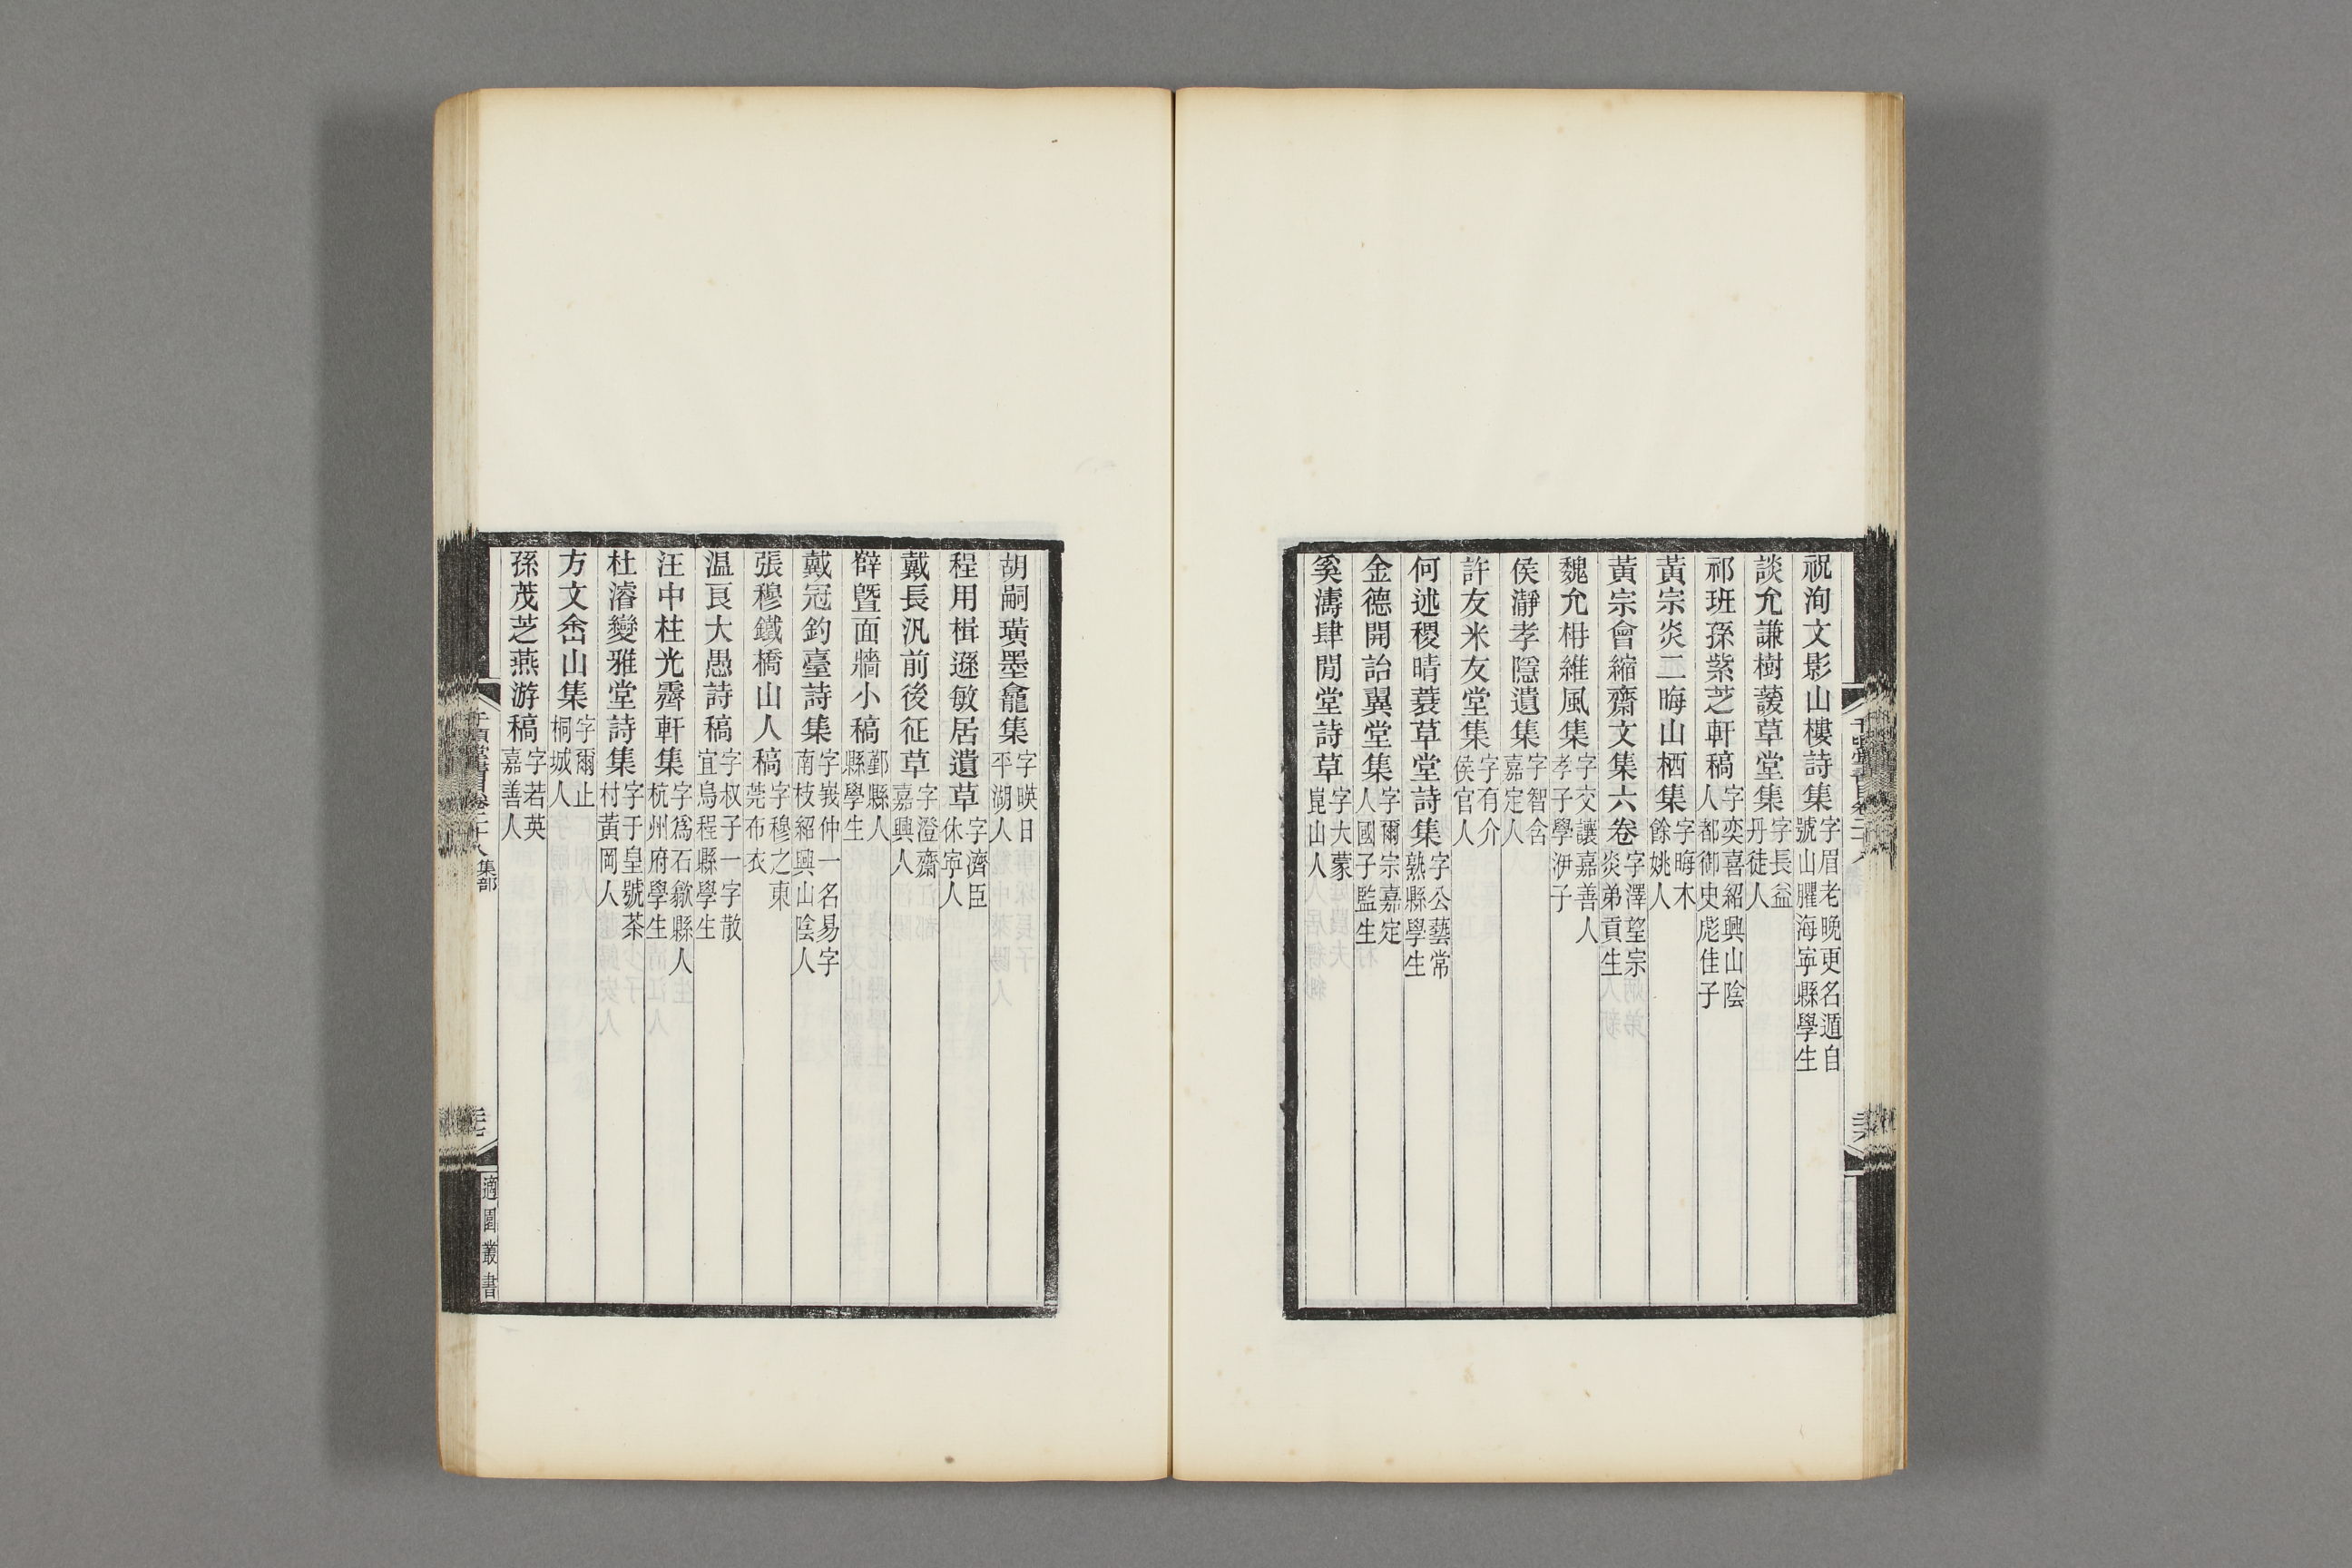 祝洵文影山樓詩集字眉老晚更名遁自號山臞海寧縣學生
談允謙樹萲草堂集字長益丹徒人
祁班孫紫芝軒稿字奕喜紹興山陰人都御史彪佳子
黃宗炎二晦山栖集字晦木餘姚人
黃宗會縮齋文集六卷字澤望宗炎弟貢生
魏允枏維風集字交讓嘉善人孝子學洢子
侯瀞孝隱遺集字智含嘉定人
許友米友堂集字有介侯官人
何述稷晴蓑草堂詩集字公藝常熟縣學生
金德開詒翼堂集字爾宗嘉定人國子監生
奚濤肆閒堂詩草字大蒙崑山人
胡嗣璜墨龕集字暎日平湖人
程用楫遜敏居遺草字濟臣休寧人
戴長汎前後征草字澄齋嘉興人
辥曁面牆小稿鄞縣人縣學生
戴冠釣臺詩集字峩仲一名易字南枝紹興山陰人
張穆鐵橋山人稿字穆之東莞布衣
温良大愚詩稿字叔子一字散宜烏程縣學生
汪中柱光霽軒集字爲石歙縣人杭州府學生
杜濬變雅堂詩集字于皇號茶村黃岡人
方文嵞山集字爾止桐城人
孫茂芝燕游稿字若英嘉善人
千頃堂書目卷二十八 集部
適園叢書